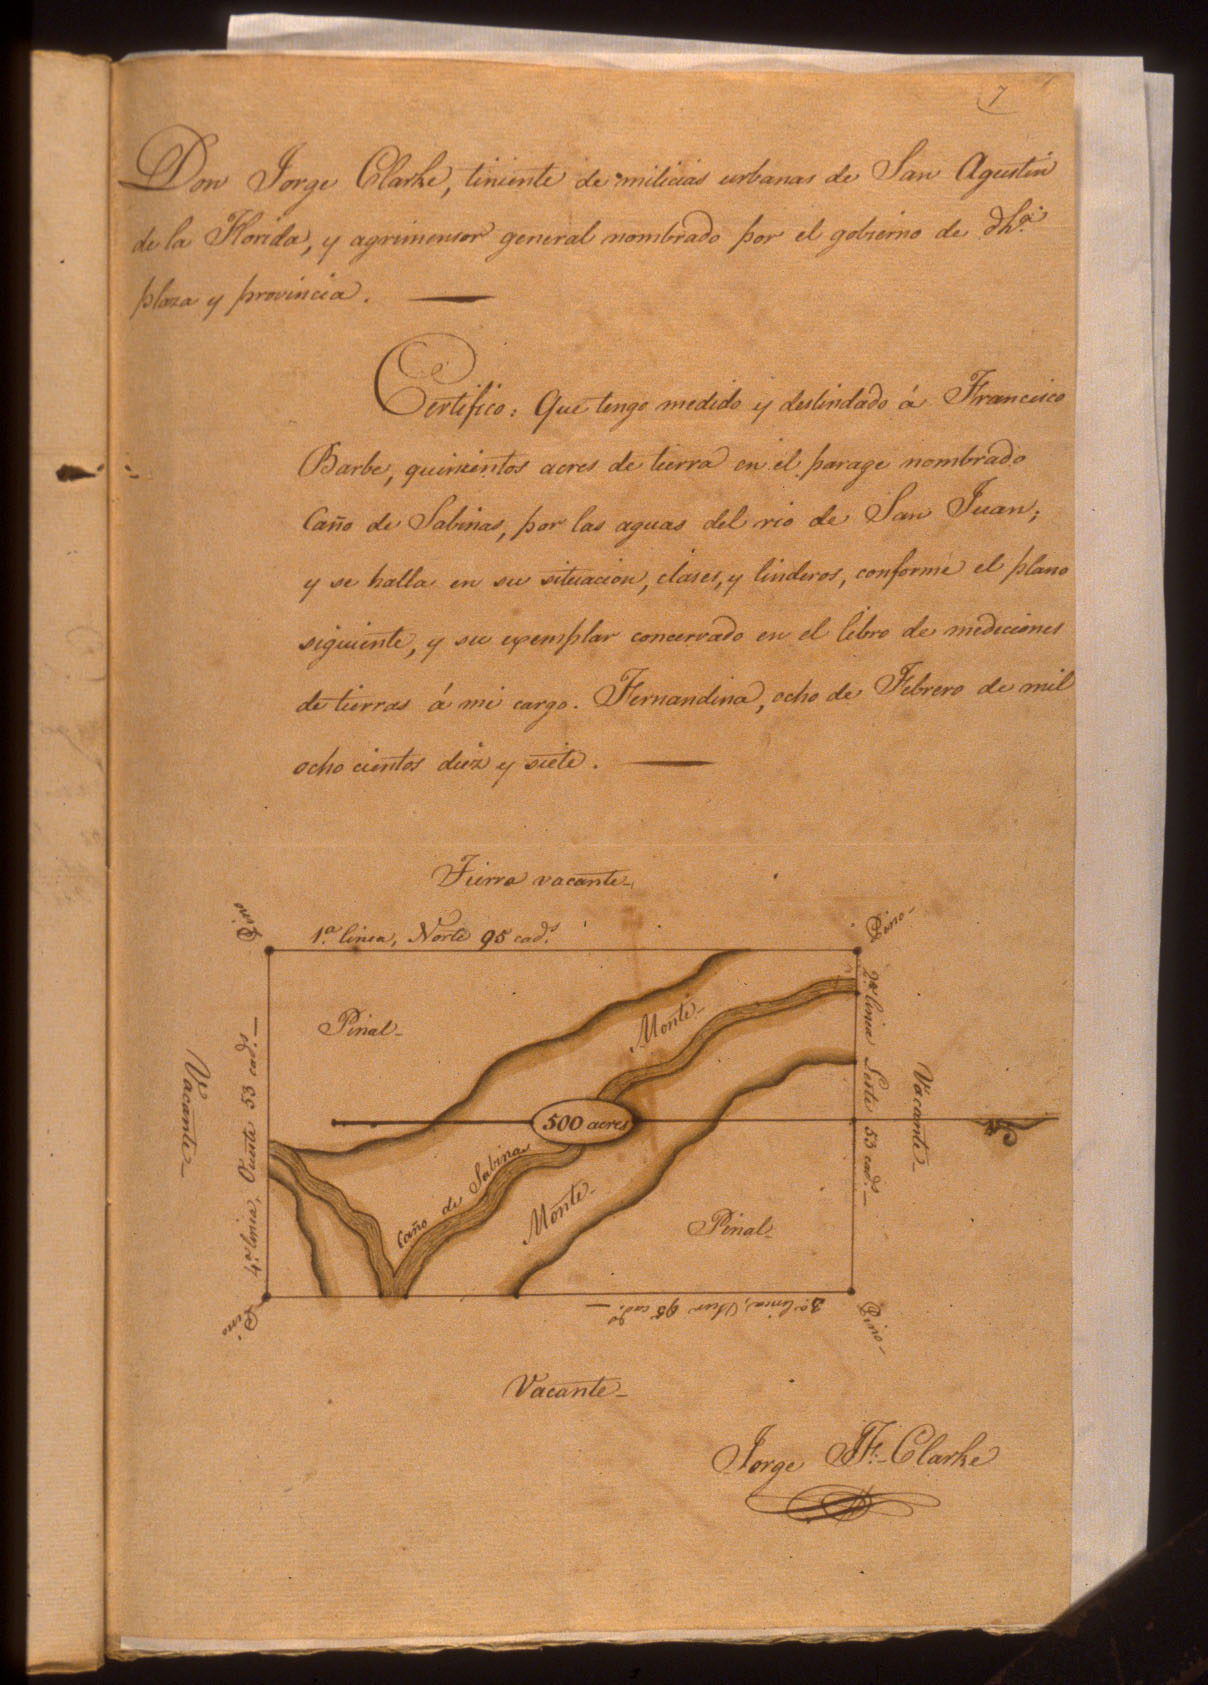 7
Don Jorge Clarke, tiniente de milicias urbanas de San Agustin
de la Florida, y agrimensor general nombrado por el gobierno de dha.
plaza y provincia.
Certifico: Que tengo medido y deslindado á Francisco
Barbe, quinientos acres de tierra en el parage nombrado
Caño de Sabinas, por las aguas del rio de San Juan;
y se halla en su situacion, clases, y linderos, conforme el plano
siguiente, y su exemplar concervado en el libro de mediciones
de tierras á mi cargo. Fernandina, ocho de Febrero de mil
ocho cientos diez y siete.
Tierra vacante
Pino
1.a linea, Norte 95 cad.s
Pino
Pinal
Monte
2.a linea Leste 53 cad.s
Vacante
4.a linea, Oeste 53 cad.s
Vacante
500 acres
Caño de Sabinas
Monte
Pinal
Pino
3.a linea, Sur 95 cad.s
Pino
Vacante
Jorge J. F. Clarke